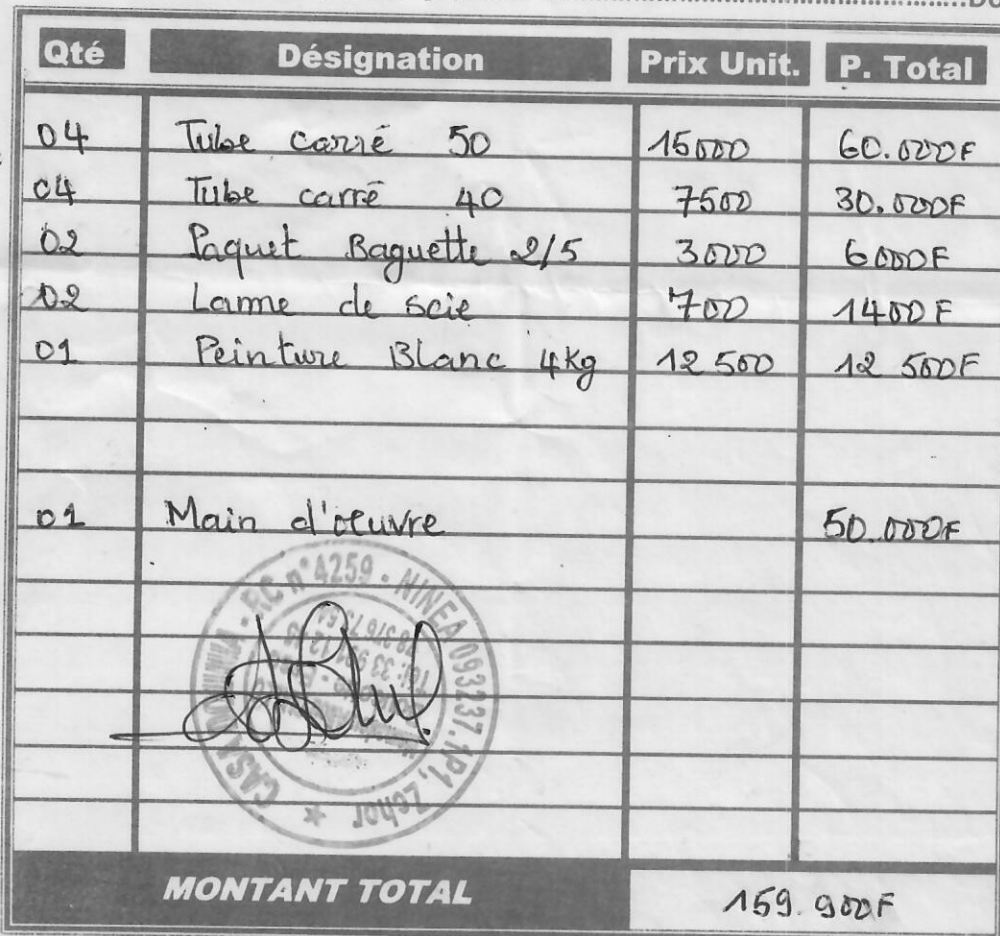 Qté Désignation Prix Unit. P. Total
04 Tube carré 50 15000 60.000F
04 Tube carré 40 7500 30.000F
02 Paquet Baguette 2/5 3000 6000F
02 Lame de scie 700 1400F
01 Peinture Blanc 4kg 12 500 12 500F
01 Main d'oeuvre 50.000F
RC n°4259 - NINEA 093237.1P1, Zchor
MONTANT TOTAL 159.900F